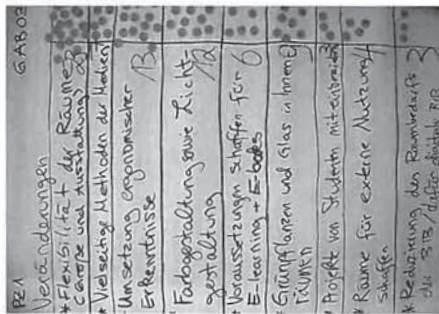 PZ1 GAB02
Veränderungen
* Flexibilität der Räume
(Größe und Ausstattung)
* Vielseitige Methoden der Medien
Umsetzung ergonomischer 13
Erkenntnisse
Farbgestaltung sowie Licht- 12
gestaltung
* Voraussetzungen schaffen für 6
E-learning + E-books
* Grünpflanzen und Glas in Innen-
räumen
* Projekte von Studenten miteinbeziehen 3
* Räume für externe Nutzung 4
schaffen
* Reduzierung des Raumbedarfs 3
der BIB /